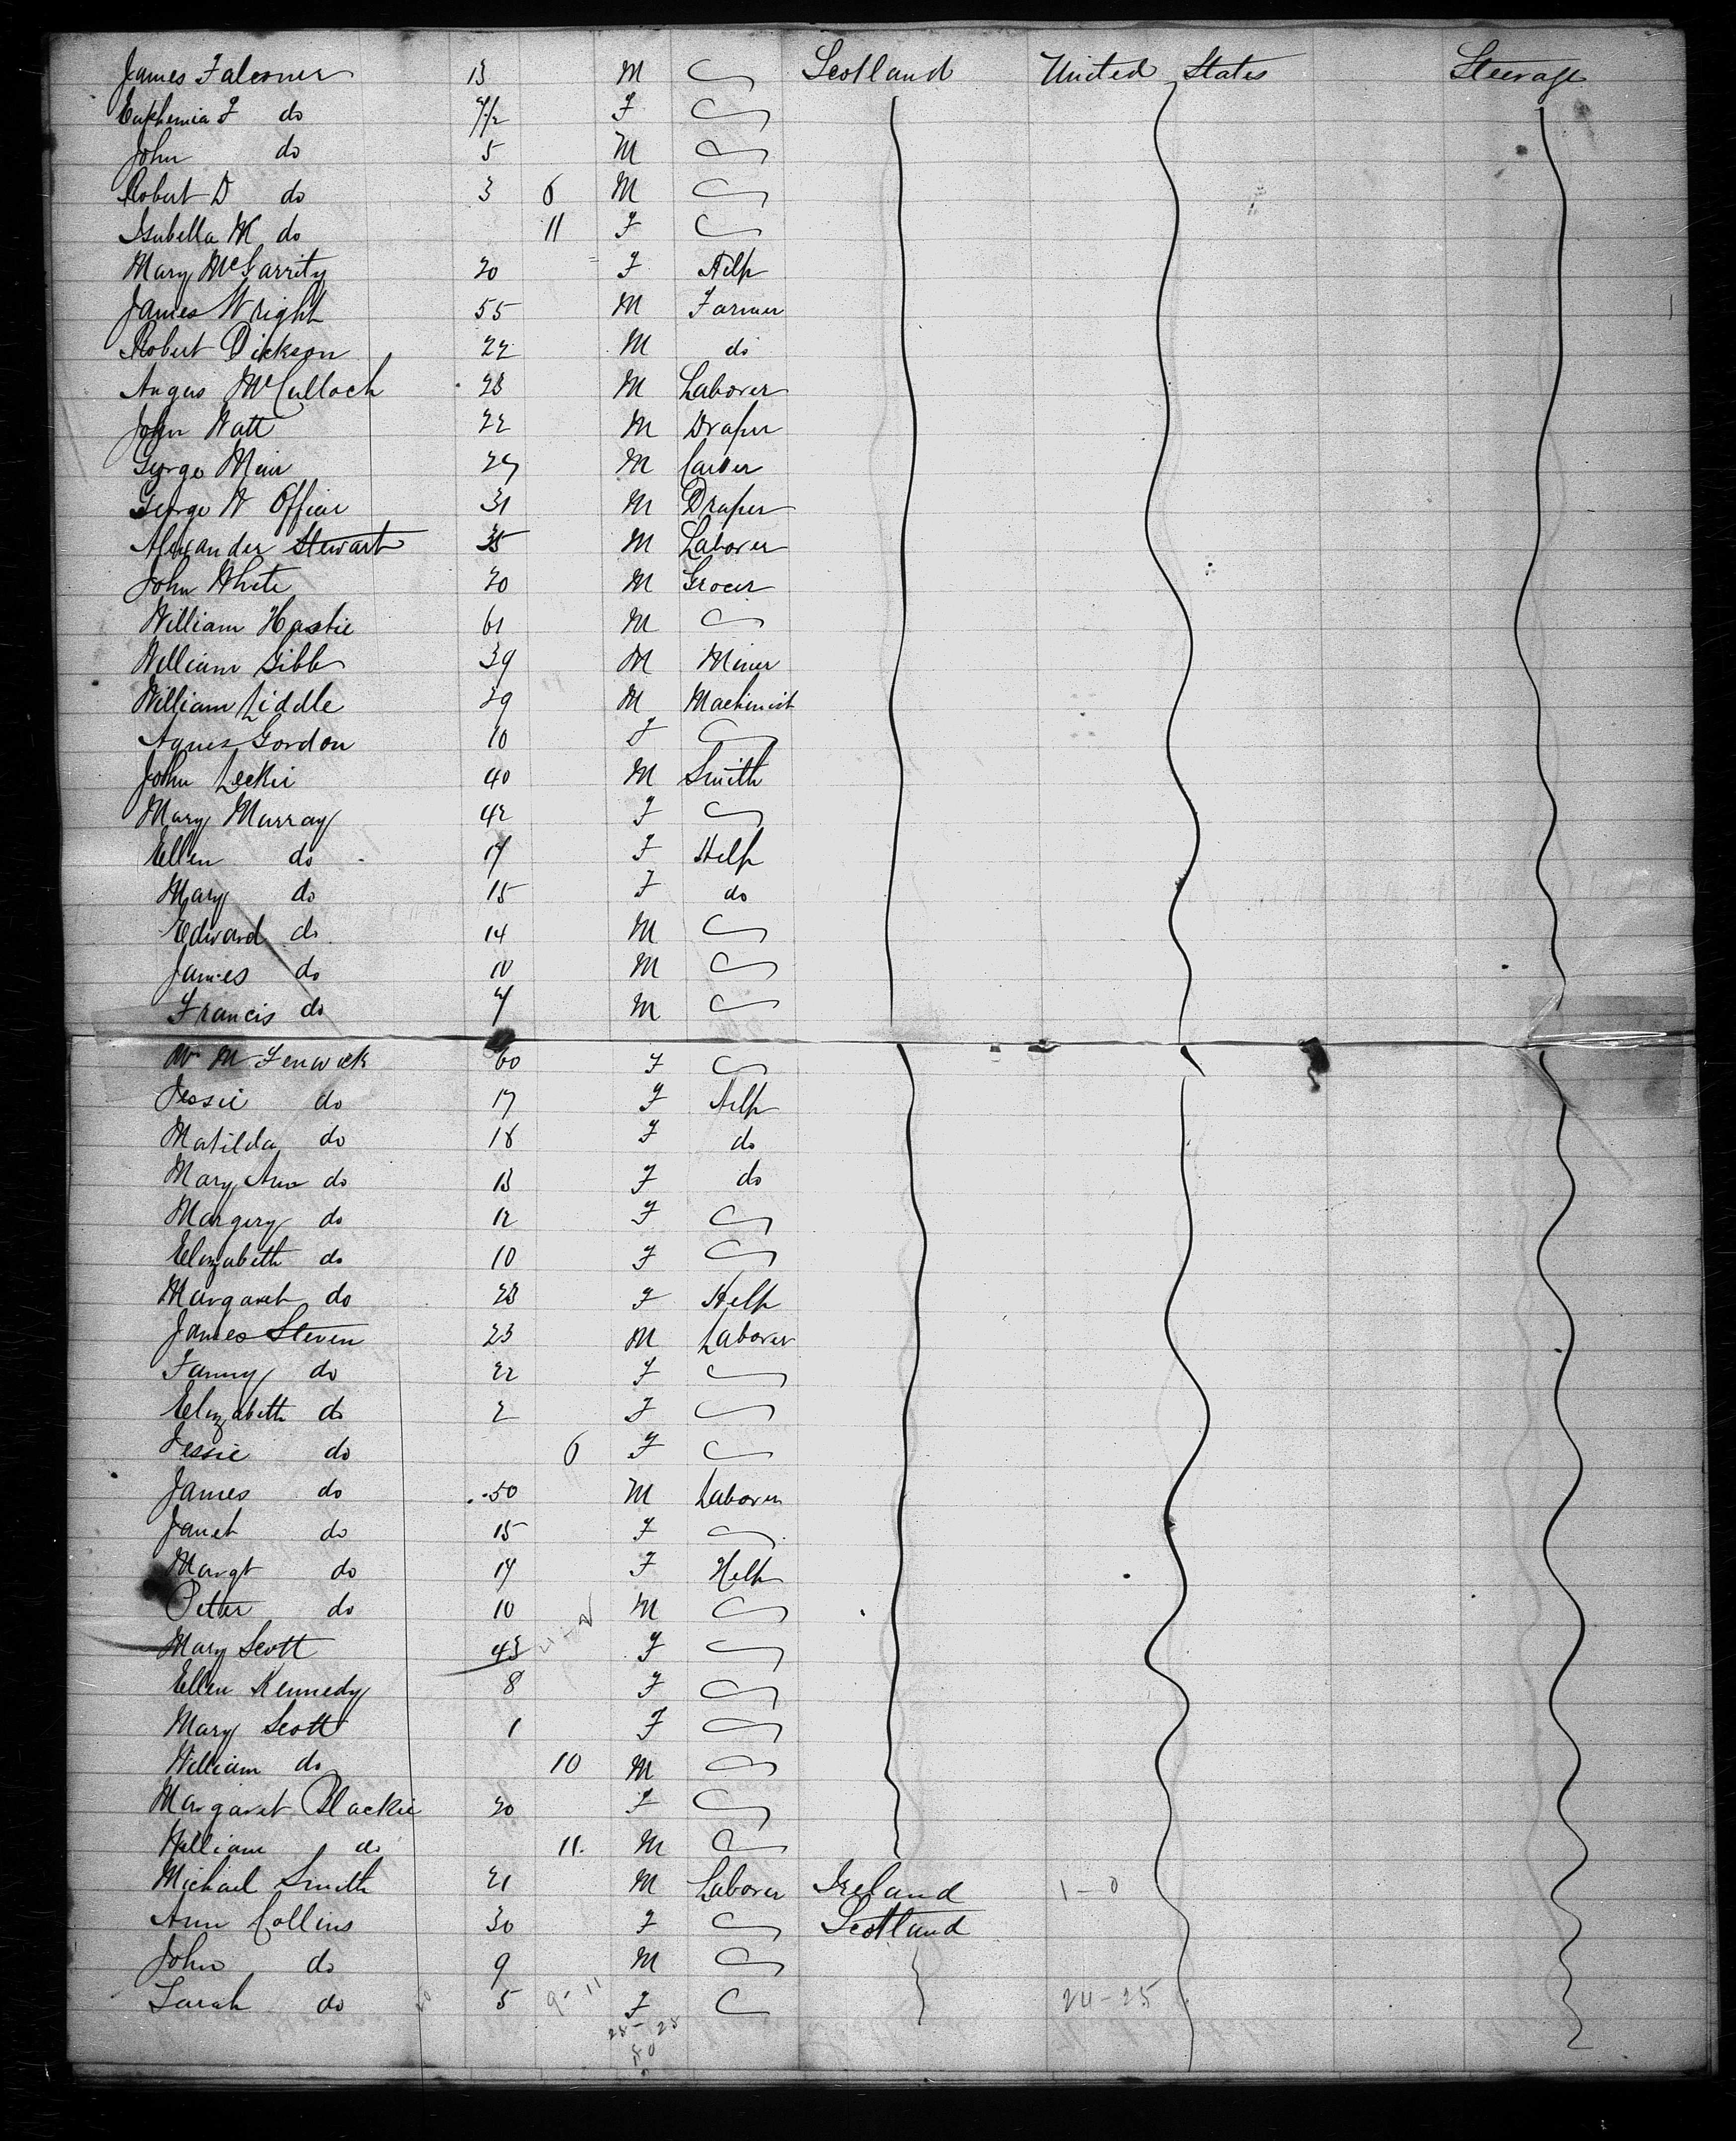 James Falconer 13 M Scotland United States Steerage
Euphemia F do 7 1/2 F
John do 5 M
Robert D do 3 6 M
Isabella M do 11 F
Mary McGarrity 20 F Help
James Wright 55 M Farmer
Robert Dickson 22 M do
Angus McCulloch 23 M Laborer
John Watt 22 M Draper
George Muir 27 M
George W Officer 31 M Draper
Alexander Stewart 35 M Laborer
John White 20 M Grocer
William Hastie 61 M
William Gibb 39 M Miner
William Liddle 29 M Machinist
Agnes Gordon 10 F
John Leckie 40 M Smith
Mary Murray 42 F
Ellen do 17 F Help
Mary do 15 F do
Edward do 14 M
James do 10 M
Francis do 7 M
M Fenwick 60 F
Jessie do 17 F Help
Matilda do 16 F do
Mary Ann do 13 F do
Margery do 12 F
Elizabeth do 10 F
Margaret do 23 F Help
James Steven 23 M Laborer
Fanny do 22 F
Elizabeth do 2 F
Jessie do 6 F
James do 50 M Laborer
Janet do 15 F
Margt do 17 F Help
Petter do 10 M
Mary Scott 43 F
Ellen Kennedy 8 F
Mary Scott 1 F
William do 10 M
Margaret Blackie 20 F
William do 11. M
Michael Smith 21 M Laborer Ireland 1-0
Ann Collins 30 F Scotland
John do 9 M
Sarah do 5 9-11 F 24-25
25-25
50